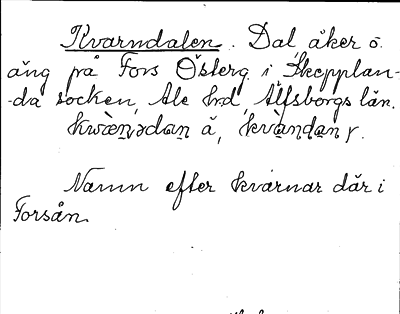 Kvarndalen. Dal åker o.
äng på Fors Österg. i Skepplan-
-da socken, Ale hd, Älfsborgs län.
kwæ̀ṇədaṇ å, kvàṇdaṇ y.
Namn efter kvarnar där i
Forsån.